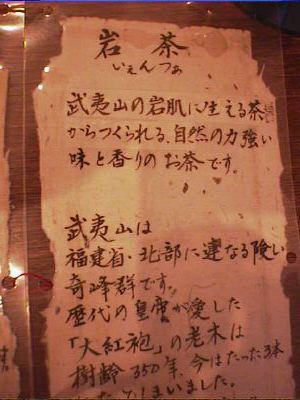 岩茶
いぇんつぁ
武夷山の岩肌に生える茶
からつくられる、自然の力強い
味と香りのお茶です。
武夷山は
福建省・北部に連なる険い
奇峰群です。
歴代の皇帝が愛した
「大紅袍」の老木は
樹齢350年、今はたった3本
しまいました。